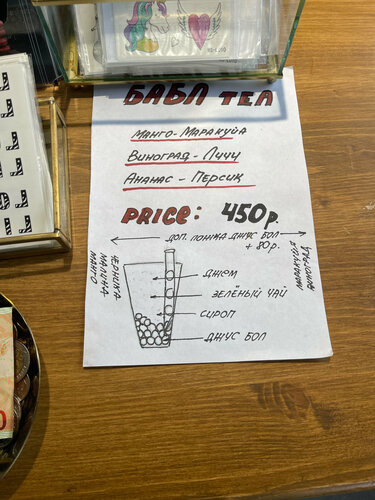 БАБЛ ТЕА
МАНГО-МАРАКУЙЯ
ВИНОГРАД-ЛИЧИ
АНАНАС-ПЕРСИК
PRICE: 450р.
ДОП. ЛОЖКА ДЖУС БОЛ
+ 80р.
ЧЕРНИКА
МАЛИНА
МАНГО
ДЖЕМ
ЗЕЛЁНЫЙ ЧАЙ
СИРОП
ДЖУС БОЛ